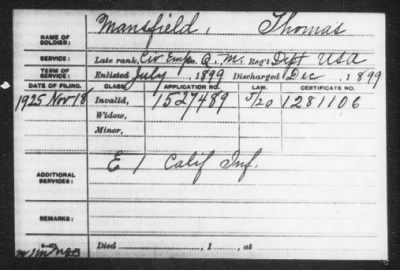 NAME OF SOLDIER: Mansfield, Thomas
SERVICE: Late rank, Civ Emp. Q. M. Reg't Dept USA
TERM OF SERVICE: Enlisted July, 1899 Discharged Dec, 1899
DATE OF FILING. CLASS. APPLICATION NO. LAW. CERTIFICATE NO.
1925 Nov 18 Invalid, 1527489 5/20 1281106
Widow,
Minor,
ADDITIONAL SERVICES: E 1 Calif Inf.
REMARKS:
Died , 1 , at